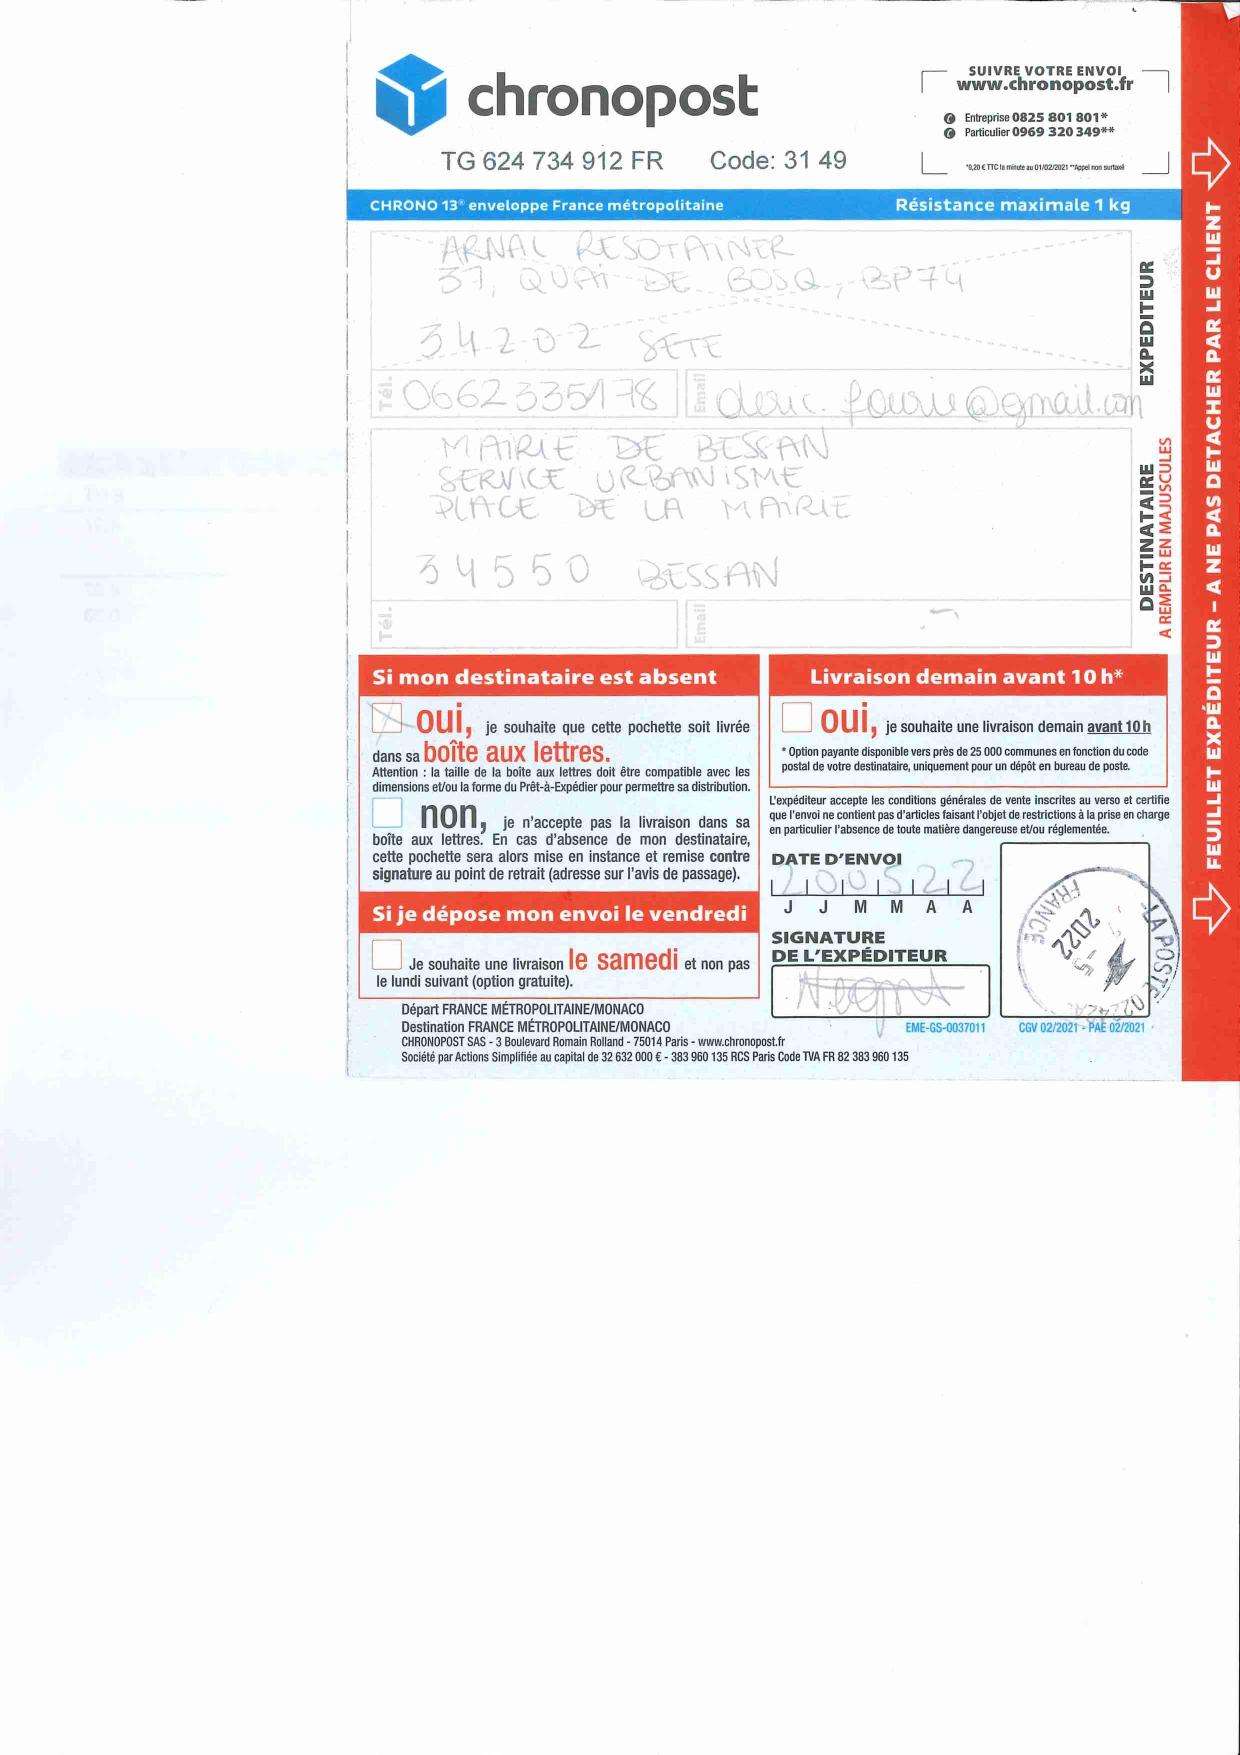 chronopost
SUIVRE VOTRE ENVOI
www.chronopost.fr
Entreprise 0825 801 801*
Particulier 0969 320 349**
*0,20 € TTC la minute au 01/02/2021 **Appel non surtaxé
TG 624 734 912 FR Code: 31 49
CHRONO 13® enveloppe France métropolitaine Résistance maximale 1 kg
ARNAL RESOTAINER
37, QUAI DE BOSQ, BP74
34202 SETE
EXPEDITEUR
Tél. 0662335178 Email @gmail.com
MAIRIE DE BESSAN
SERVICE URBANISME
PLACE DE LA MAIRIE
34550 BESSAN
Tél. Email
DESTINATAIRE
A REMPLIR EN MAJUSCULES
FEUILLET EXPÉDITEUR – A NE PAS DETACHER PAR LE CLIENT
Si mon destinataire est absent
oui, je souhaite que cette pochette soit livrée
dans sa boîte aux lettres.
Attention : la taille de la boîte aux lettres doit être compatible avec les
dimensions et/ou la forme du Prêt-à-Expédier pour permettre sa distribution.
non, je n'accepte pas la livraison dans sa
boîte aux lettres. En cas d'absence de mon destinataire,
cette pochette sera alors mise en instance et remise contre
signature au point de retrait (adresse sur l'avis de passage).
Si je dépose mon envoi le vendredi
Je souhaite une livraison le samedi et non pas
le lundi suivant (option gratuite).
Livraison demain avant 10 h*
oui, je souhaite une livraison demain avant 10 h
* Option payante disponible vers près de 25 000 communes en fonction du code
postal de votre destinataire, uniquement pour un dépôt en bureau de poste.
L'expéditeur accepte les conditions générales de vente inscrites au verso et certifie
que l'envoi ne contient pas d'articles faisant l'objet de restrictions à la prise en charge
en particulier l'absence de toute matière dangereuse et/ou réglementée.
DATE D'ENVOI
200522
J J M M A A
SIGNATURE
DE L'EXPÉDITEUR
LA POSTE
2022
FRANCE
Départ FRANCE MÉTROPOLITAINE/MONACO
Destination FRANCE MÉTROPOLITAINE/MONACO
EME-GS-0037011 CGV 02/2021 - PAE 02/2021
CHRONOPOST SAS - 3 Boulevard Romain Rolland - 75014 Paris - www.chronopost.fr
Société par Actions Simplifiée au capital de 32 632 000 € - 383 960 135 RCS Paris Code TVA FR 82 383 960 135